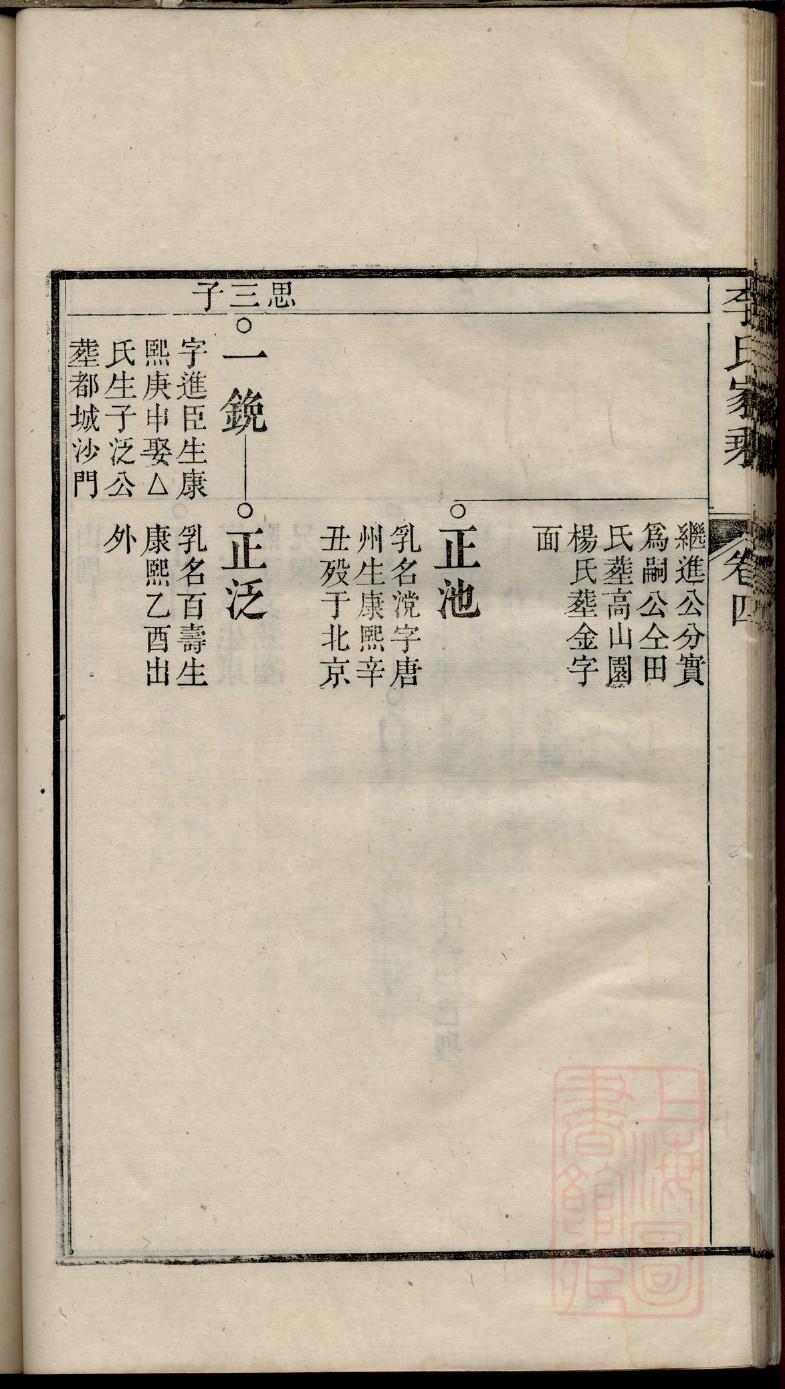 李氏家乘
卷四
繼進公分實
爲嗣公仝田
氏塟高山園
楊氏塟金字
面
正池
乳名漟字唐
州生康熙辛
丑歿于北京
思三子
一鋔
正泛
字進臣生康
熙庚申娶厶
氏生子泛公
塟都城沙門
乳名百壽生
康熙乙酉出
外
上海圖
書館藏